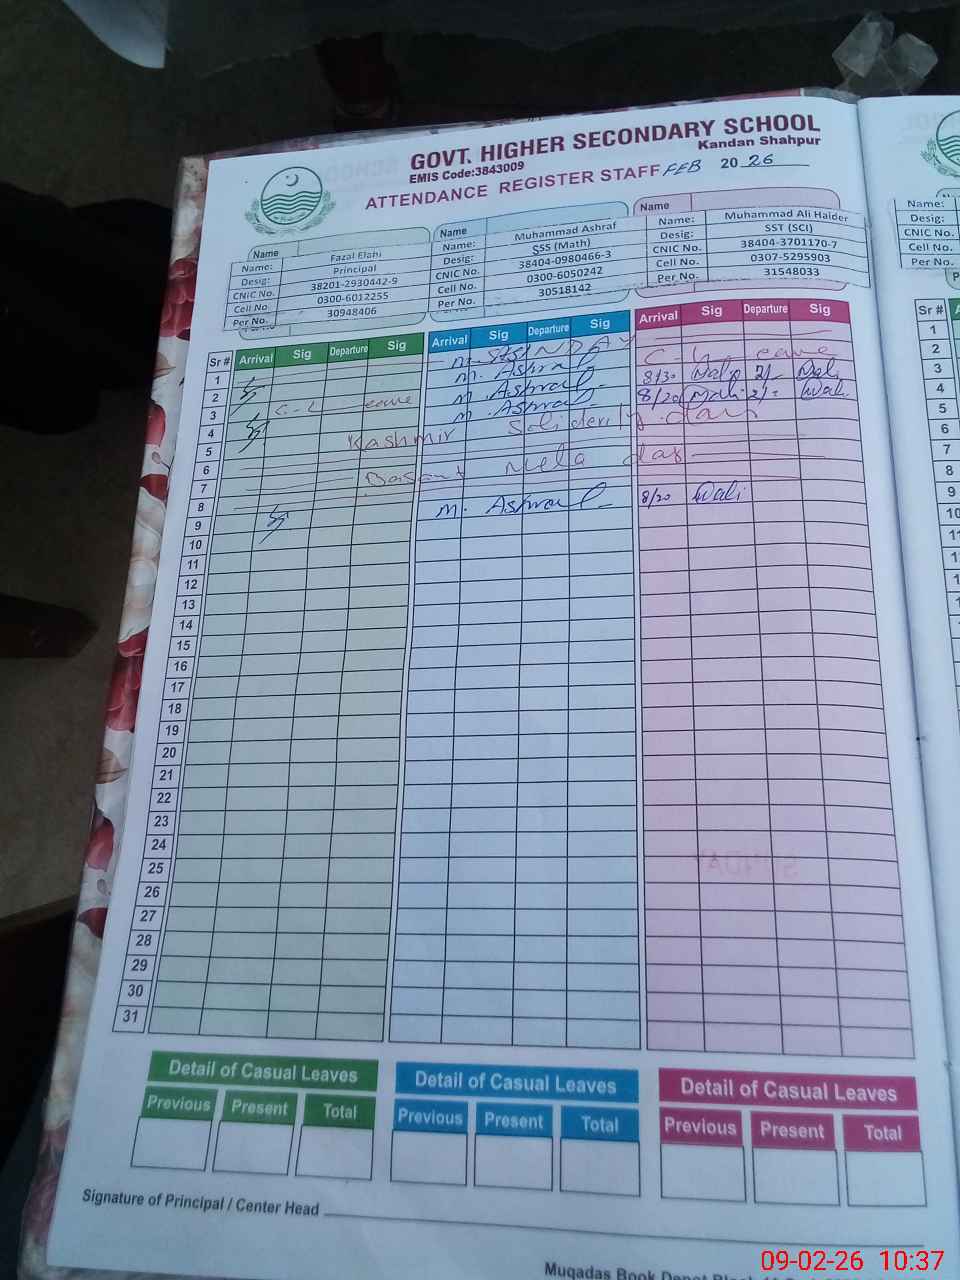 GOVT. HIGHER SECONDARY SCHOOL
Kandan Shahpur
EMIS Code:3843009
ATTENDANCE REGISTER STAFF FEB 2026
Name Name Name
Name: Fazal Elahi
Desig: Principal
CNIC No. 38201-2930442-9
Cell No. 0300-6012255
Per No. 30948406
Name: Muhammad Ashraf
Desig: SSS (Math)
CNIC No. 38404-0980466-3
Cell No. 0300-6050242
Per No. 30518142
Name: Muhammad Ali Haider
Desig: SST (SCI)
CNIC No. 38404-3701170-7
Cell No. 0307-5295903
Per No. 31548033
Sr # Arrival Sig Departure Sig Arrival Sig Departure Sig Arrival Sig Departure Sig
1
2 M. Ashraf C-L eave
3 C-L eave M. Ashraf 8/30
4 M. Ashraf 8/20
5 Kashmir Soliderity day
6
7 Basant Mela day
8
9 M. Ashraf 8/20
10
11
12
13
14
15
16
17
18
19
20
21
22
23
24
25
26
27
28
29
30
31
Detail of Casual Leaves Detail of Casual Leaves Detail of Casual Leaves
Previous Present Total Previous Present Total Previous Present Total
Signature of Principal / Center Head
Muqadas Book Depot
Name:
Desig:
CNIC No.
Cell No.
Per No.
Sr #
1
2
3
4
5
6
7
8
9
10
09-02-26 10:37